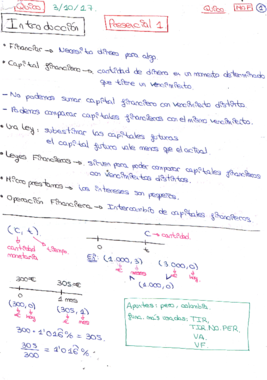 Quico 3/10/17. Quico MGF 1
Introducción Presencial 1
* Financiar → Necesito dinero para algo
* Capital financiero → cantidad de dinero en un momento determinado
que tiene un vencimiento.
- No podemos sumar capital financiero con vencimiento distinto.
- Podemos comparar capitales financieros con el mismo vencimiento.
* Una Ley: substituir los capitales futuros
el capital futuro vale menos que el actual.
* Leyes Financieras → sirven para poder comparar capitales financieros
con vencimientos distintos.
* Micro prestamos → Los intereses son pequeños.
* Operación Financiera → Intercambio de capitales financieros
(C, t)
cantidad
monetaria
tiempo
C → cantidad
0 t
EJ: (1.000, 3) (3.000, 0)
€ meses
(1.000, 0)
300€ 305€
0 1 mes
(300, 0) (305, 1)
€ mes € mes
300 · 1'016̂ % = 305.
305
300 = 1'016̂ % ·
func. más usadas: TIR,
TIR NO PER.
VA.
VF.